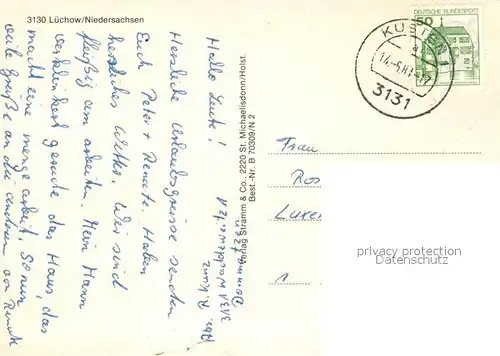 3130 Lüchow/Niedersachsen
Hallo Leute!
Herzliche Urlaubsgrüsse senden
Euch Peter + Renate. Haben
herrliches Wetter. Wir sind
fleißig am arbeiten. Mein Mann
verklinkert gerade das Haus, das
macht eine menge arbeit. So nun
viele Grüße an die anderen von Renate
Abs. R. Kunz
3131
Verlag Stramm & Co., 2220 St. Michaelisdonn/Holst.
Best.-Nr. B 70309/N 2
DEUTSCHE BUNDESPOST
50
KÜSTEN 1
3131
Frau
Ros
Luxe
1
privacy protection
Datenschutz